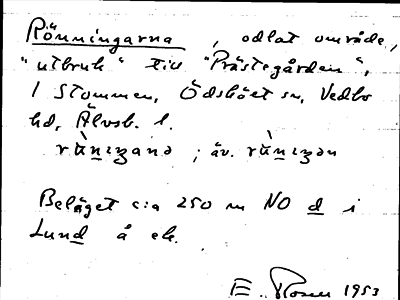 Rönningarna, odlat område,
"utbruk" till "Prästegården",
1 Stommen, Ödsköet sn, Vedbo
hd, Älvsb. l.
rǜnɩʒanə ; äv. rǜnɩʒən
Beläget c:a 250 m NO d i
Lund å ek.
E. Rosen 1953